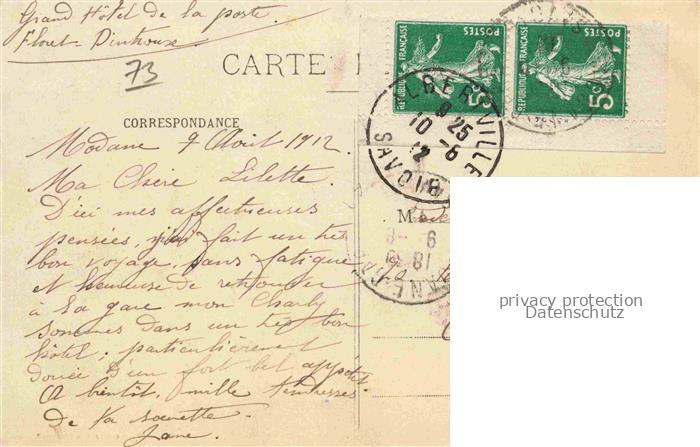 Grand Hôtel de la poste
Floret-Dinhoux
73
CARTE
CORRESPONDANCE
Modane 9 Août 1912
Ma Chère Lilette
D'ici mes affectueuses
pensées, j'ai fait un très
bon voyage, sans fatigue
et heureuse de retrouver
à la gare mon Charly
sommes dans un très bon
hôtel, particulièrement
douée d'un fort bel appétit.
A bientôt, mille tendresses
De ta soeurette
Jane.
REPUBLIQUE FRANÇAISE
POSTES
5c
REPUBLIQUE FRANÇAISE
POSTES
5c
ALBERTVILLE
9 25
10 -8
12
SAVOIE
M
privacy protection
Datenschutz